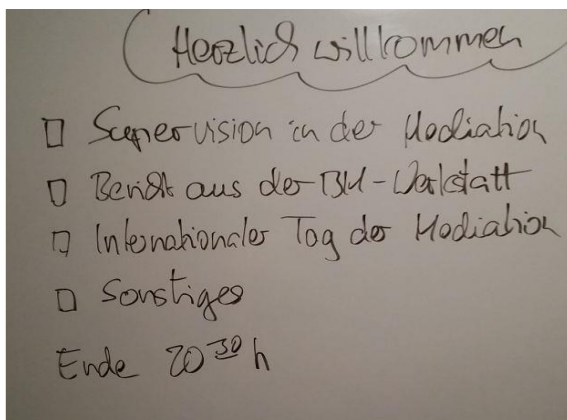 Herzlich willkommen
□ Supervision in der Mediation
□ Bericht aus der BM-Werkstatt
□ Internationaler Tag der Mediation
□ Sonstiges
Ende 20³⁰ h